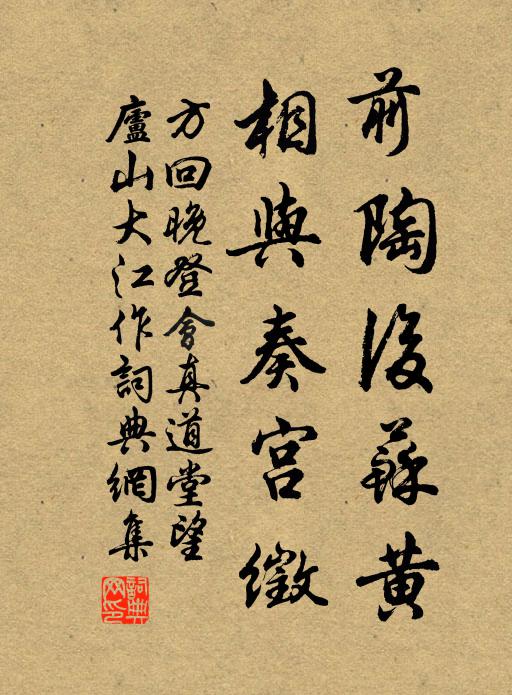 前陶後蘇黄
相與奏宮徵
方回晚登會真道堂望
廬山大江作詞典網集
詞典網印